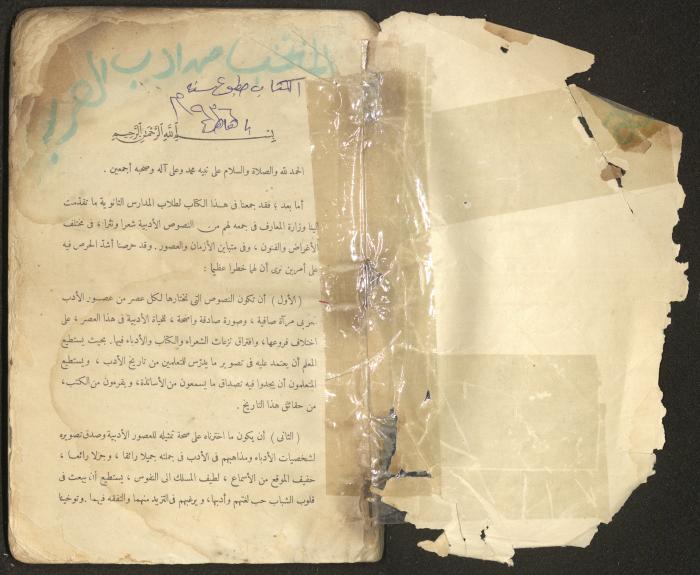 المنتخب من ادب العرب
الكتاب مطبوع سنه
بسم الله الرحمن الرحيم
الحمد لله والصلاة والسلام على نبيه محمد وعلى آله وصحبه أجمعين .
أما بعد ؛ فقد جمعنا فى هـذا الكتاب لطلاب المدارس الثانوية ما تقدّمت
الينا وزارة المعارف فى جمعه لهم من النصوص الأدبية شعرا ونثرا ، فى مختلف
الأغراض والفنون ، وفى متباين الأزمان والعصور . وقد حرصنا أشدّ الحرص فيه
على أمرين نرى أن لهما خطرا عظيما :
( الأول ) أن تكون النصوص التى نختارها لكل عصر من عصـور الأدب
العربى مرآة صافية ، وصورة صادقة واضحة ، للحياة الأدبية فى هذا العصر ، على
اختلاف فروعها ، وافتراق نزعات الشعراء والكتاب والأدباء فيها . بحيث يستطيع
المعلم أن يعتمد عليه فى تصوير ما يدرّس للمتعلمين من تاريخ الأدب ، ويستطيع
المتعلمون أن يجدوا فيه تصداق ما يسمعون من الأساتذة ، ويقرءون من الكتب ،
من حقائق هذا التاريخ .
( الثانى ) أن يكون ما اخترناه على صحة تمثيله للعصور الأدبية وصدق تصويره
لشخصيات الأدباء ومذاهبهم فى الأدب فى جملته جميلا رائقا ، وجزلا رائعـا ،
خفيف الموقع من الأسماع ، لطيف المسلك الى النفوس ، يستطيع أن يبعث فى
قلوب الشباب حب لغتهم وأدبها ، ويرغبهم فى التزيد منهما والتفقه فيهـما . وتوخينا